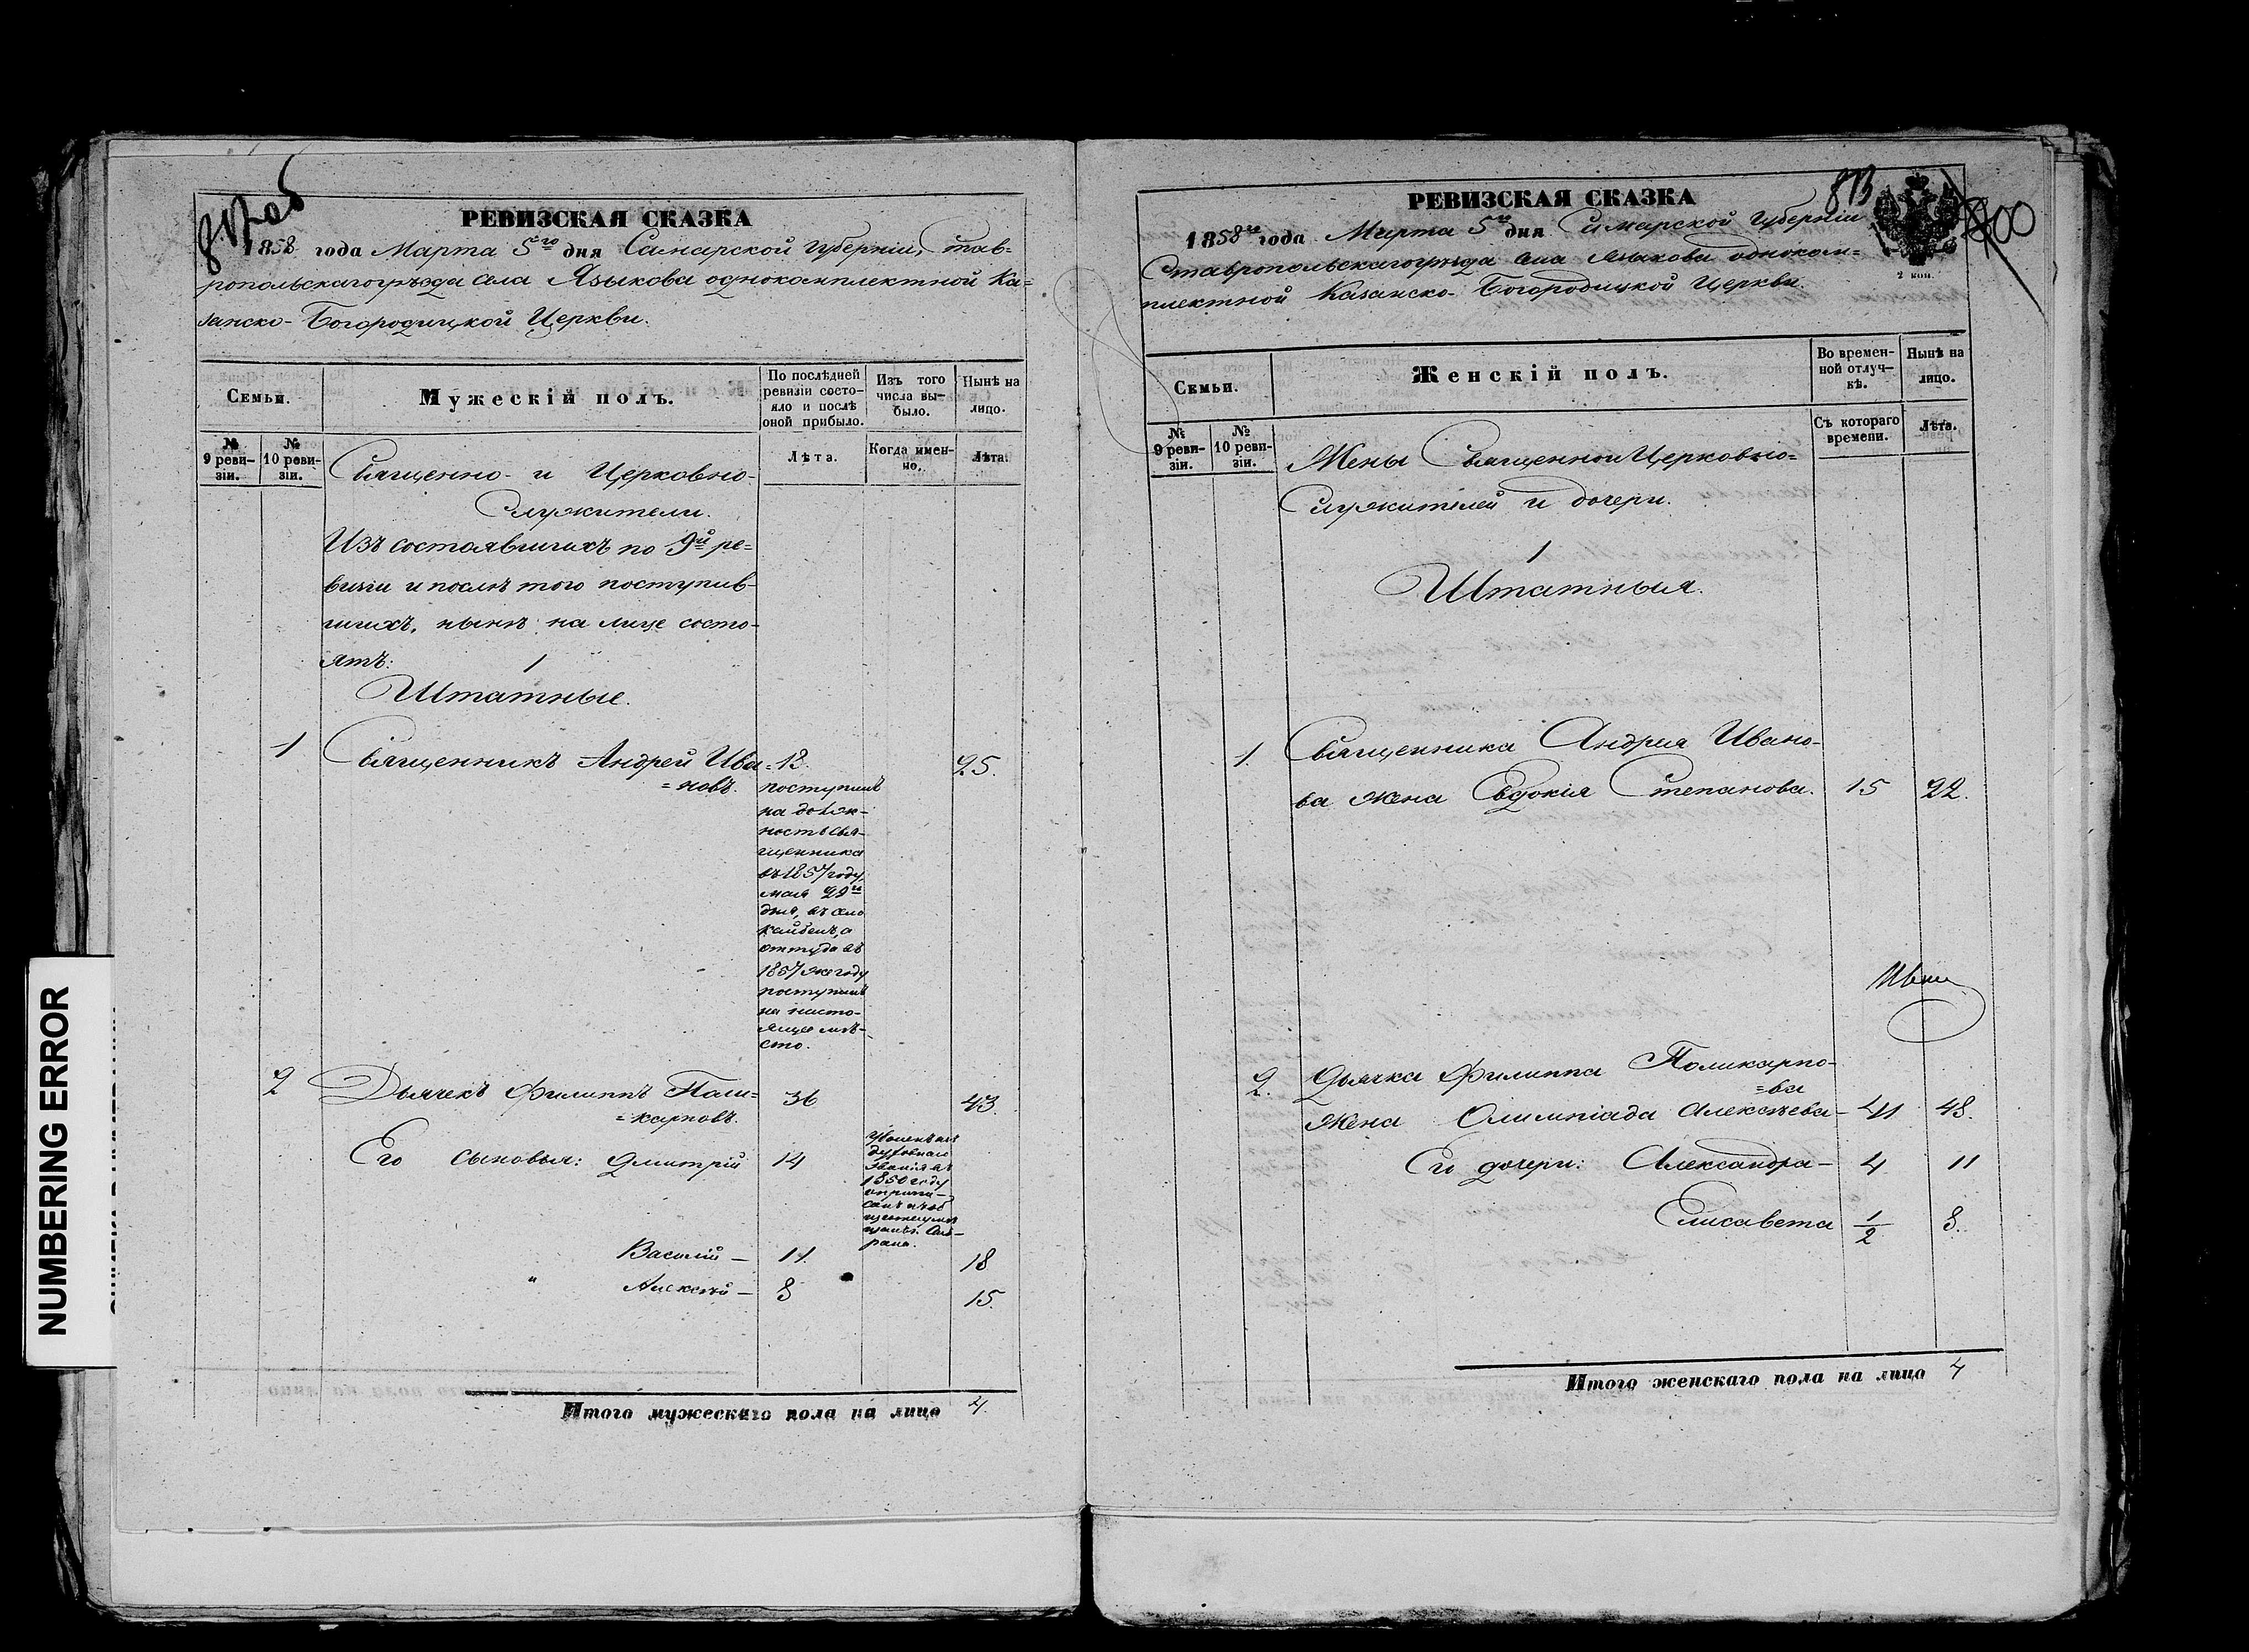 РЕВИЗСКАЯ СКАЗКА
1858 года Марта 5го дня Самарской Губернiи, Став=
ропольскагоуѣзда села Языкова однокомплектной Ка=
занско-Богородицкой Церкви.
Семьи.
Мужескій полъ.
По послѣдней
ревизіи состо-
яло и послѣ
оной прибыло.
Изъ того
числа вы-
было.
Нынѣ на
лицо.
№
9 реви-
зіи.
№
10 реви-
зіи.
Лѣта.
Когда имен-
но.
Лѣта.
Священно- и Церковно-
служители.
Изъ состоявшихъ по 9й ре=
визiи и послѣ того поступив-
шихъ, нынѣ на лице состо-
ятъ:
1
Штатные.
1 Священникъ Андрей Ива= 18. 25.
=новъ.
поступилъ
на долж-
ность свя-
щенника
въ 1857 году,
мая 22го
дня, въ село
оттуда въ
1857 же году
поступилъ
на насто-
ящее мѣ-
сто.
2 Дьячекъ Филиппъ Поли= 36 43.
=карповъ.
Его сыновья: Дмитрій 14
Уволенъ изъ
духовнаго
званія въ
1850 году
Василій — 11. 18
" Алексѣй — 8 15.
Итого мужескаго пола на лицо 4.
РЕВИЗСКАЯ СКАЗКА
813
800
2 коп.
1858го года Марта 5го дня Самарской Губернiи
Ставропольскагоуѣзда села Языкова одноком=
плектной Казанско-Богородицкой Церкви.
Семьи.
Женскій полъ.
Во времен-
ной отлуч-
кѣ.
Нынѣ на
лицо.
№
9 реви-
зіи.
№
10 реви-
зіи.
Съ котораго
времени.
Лѣта.
Жены Священно и Церковно=
служителей и дочери.
1
Штатныя.
1. Священника Андрея Ивано-
ва жена Евдокія Степанова. 15 22.
2. Дьячка Филиппа Поликарпо-
=ва
жена Олимпіада Алексѣева — 41 48.
Его дочери: Александра — 4 11
Елисавета 1/2 8.
Итого женскаго пола на лицо 4
NUMBERING ERROR